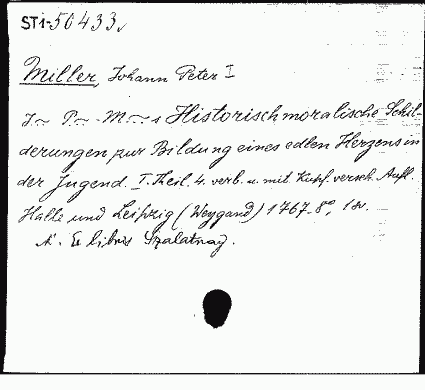 STi-50433
Miller, Johann Peter I
J~ P.~ M~s Historischmoralische Schil-
derungen zur Bildung eines edlen Herzens in
der Jugend. I. Theil. 4. verb. u. mit Kupf. verseh. Aufl.
Halle und Leipzig (Weygand) 1767. 8°, 1 w.
N. Ex libris Szalatnay.